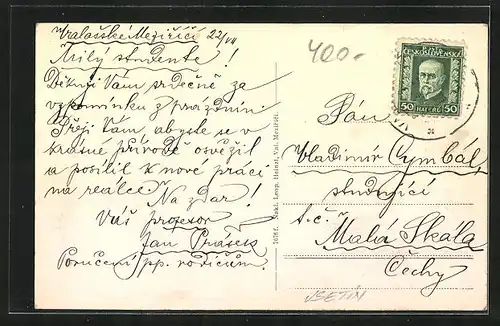 Valašské Meziříčí 22/VII
Milý studente!
Děkuji Vám srdečně za
vzpomínku z prázdnin.
Přeji Vám, abyste se v
krásné přírodě osvěžil
a posílil k nové práci
na reálce.
Na zdar!
Váš profesor
Jan Prášek
Poručení pp. rodičům.
400.-
ČESKOSLOVENSKÁ
50 HALÉŘŮ 50
Pán
Vladimír Cymbál,
studující
t. č.
Malá Skála
Čechy
VSETÍN
Nakl. Leop. Heinzl, Val. Meziříčí.